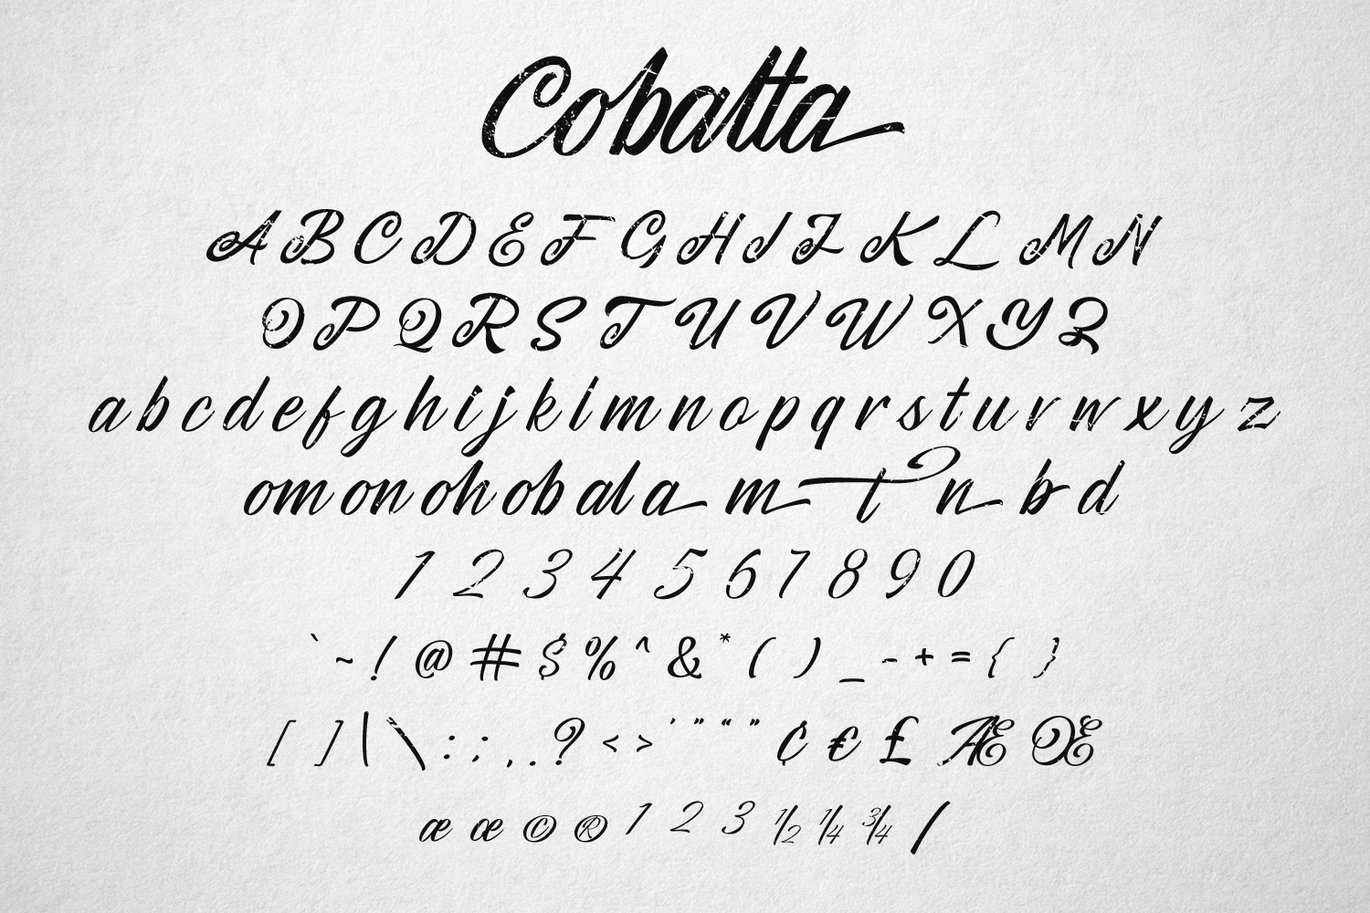 Cobalta
A B C D E F G H I J K L M N
O P Q R S T U V W X Y Z
a b c d e f g h i j k l m n o p q r s t u r w x y z
om on oh ob al a m t n b d
1 2 3 4 5 6 7 8 9 0
` ~ ! @ # $ % ^ & * ( ) _ - + = { }
[ ] | \ : ; , . ? < > ' " “ ” ¢ € £ Æ Œ
æ œ © ® 1 2 3 ½ ¼ ¾ /